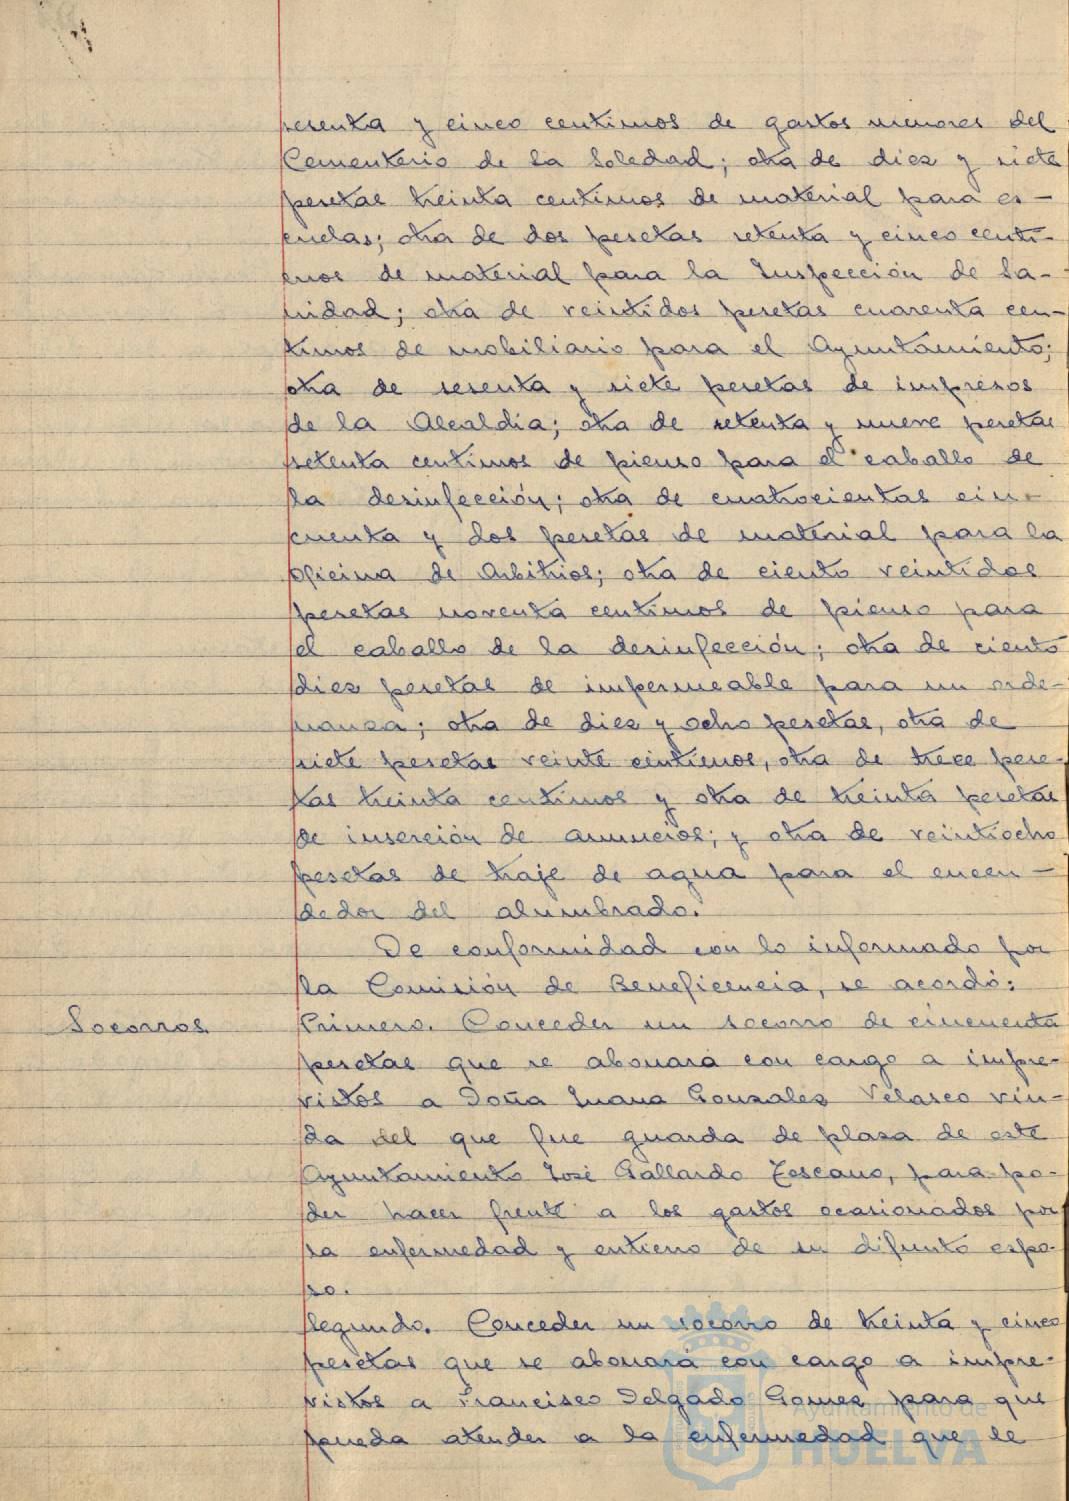 sesenta y cinco centimos de gastos menores del
Cementerio de la Soledad; otra de diez y siete
pesetas treinta centimos de material para es-
cuelas; otra de dos pesetas setenta y cinco centi-
mos de material para la Inspección de Sa-
nidad; otra de veintidos pesetas cuarenta cen-
timos de mobiliario para el Ayuntamiento;
otra de sesenta y siete pesetas de impresos
de la Alcaldía; otra de setenta y nueve pesetas
setenta centimos de pienso para el caballo de
la desinfección; otra de cuatrocientas cin-
cuenta y dos pesetas de material para la
oficina de Arbitrios; otra de ciento veintidos
pesetas noventa centimos de pienso para
el caballo de la desinfección; otra de ciento
diez pesetas de impermeable para un orde-
nanza; otra de diez y ocho pesetas, otra de
siete pesetas veinte centimos, otra de trece pese-
tas treinta centimos y otra de treinta pesetas
de inserción de anuncios; y otra de veintiocho
pesetas de traje de agua para el encen-
dedor del alumbrado.
De conformidad con lo informado por
la Comisión de Beneficencia, se acordó:
Socorros. Primero. Conceder un socorro de cincuenta
pesetas que se abonará con cargo a impre-
vistos a Doña Juana Gonzalez Velasco viu-
da del que fue guarda de plaza de este
Ayuntamiento José Gallardo Lescano, para po-
der hacer frente a los gastos ocasionados por
la enfermedad y entierro de su difunto espo-
so.
Segundo. Conceder un socorro de treinta y cinco
pesetas que se abonará con cargo a impre-
vistos a Francisco Delgado Gomez para que
pueda atender a la enfermedad que le
Ayuntamiento de
HUELVA